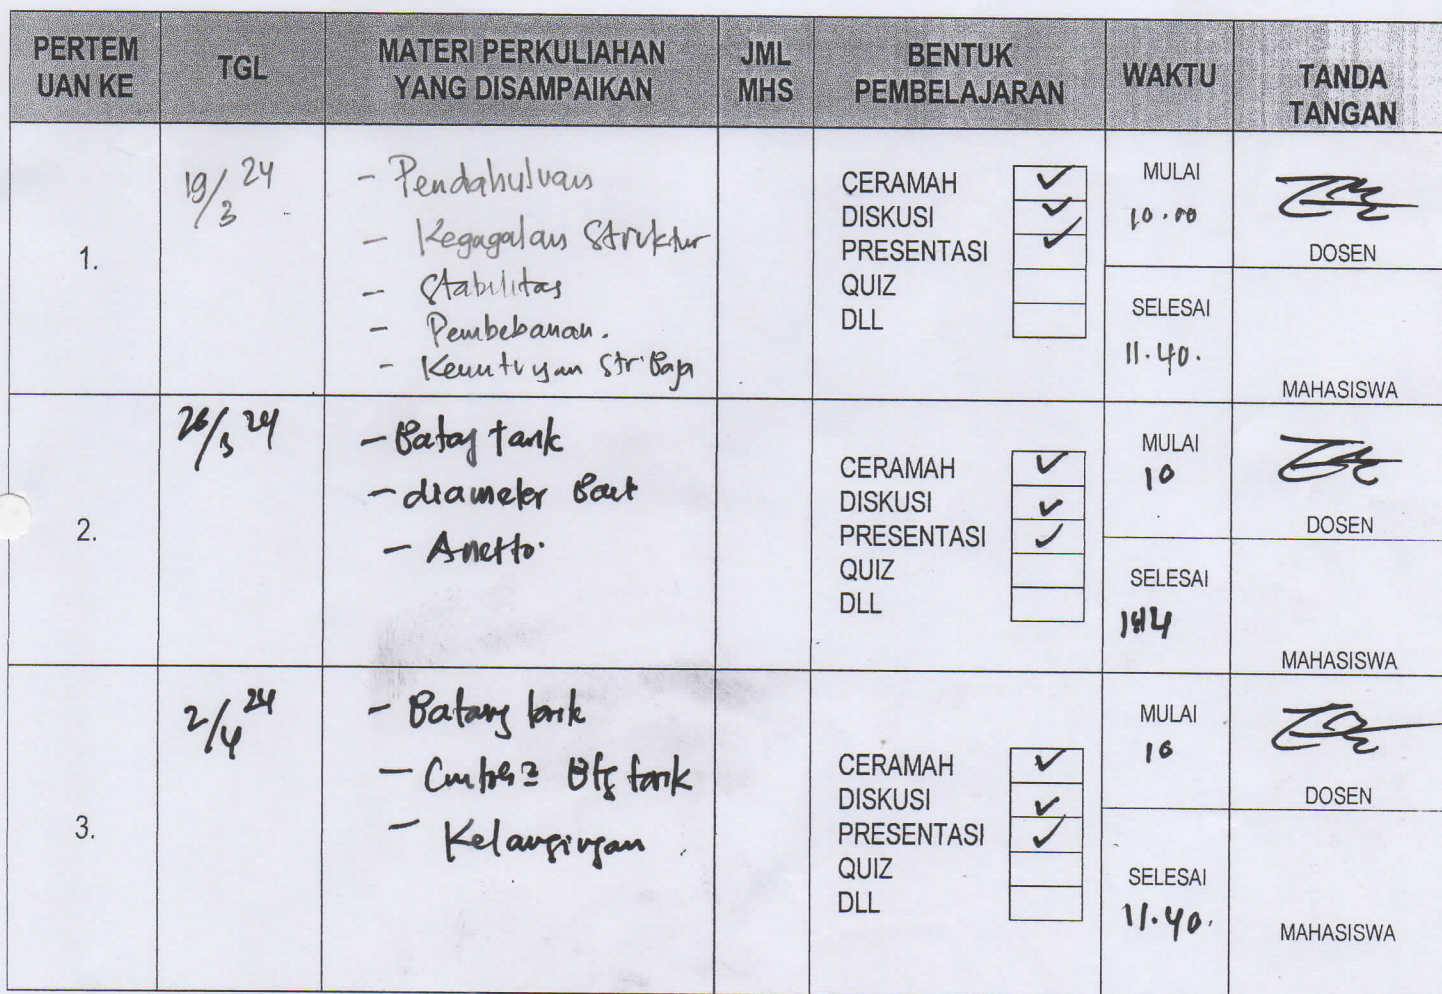 PERTEM
UAN KE
TGL
MATERI PERKULIAHAN
YANG DISAMPAIKAN
JML
MHS
BENTUK
PEMBELAJARAN
WAKTU
TANDA
TANGAN
1.
19/3 24
- Pendahuluan
- Kegagalan Struktur
- Stabilitas
- Pembebanan.
- Str Baja
CERAMAH ✓
DISKUSI ✓
PRESENTASI ✓
QUIZ
DLL
MULAI
10.00
SELESAI
11.40.
DOSEN
MAHASISWA
2.
26/3 24
- Batag tarik
- diameter Baut
- Anetto.
CERAMAH ✓
DISKUSI ✓
PRESENTASI ✓
QUIZ
DLL
MULAI
10
SELESAI
DOSEN
MAHASISWA
3.
2/4 24
- Batang tarik
- Btg tarik
- Kelangsingan
CERAMAH ✓
DISKUSI ✓
PRESENTASI ✓
QUIZ
DLL
MULAI
10
SELESAI
11.40.
DOSEN
MAHASISWA